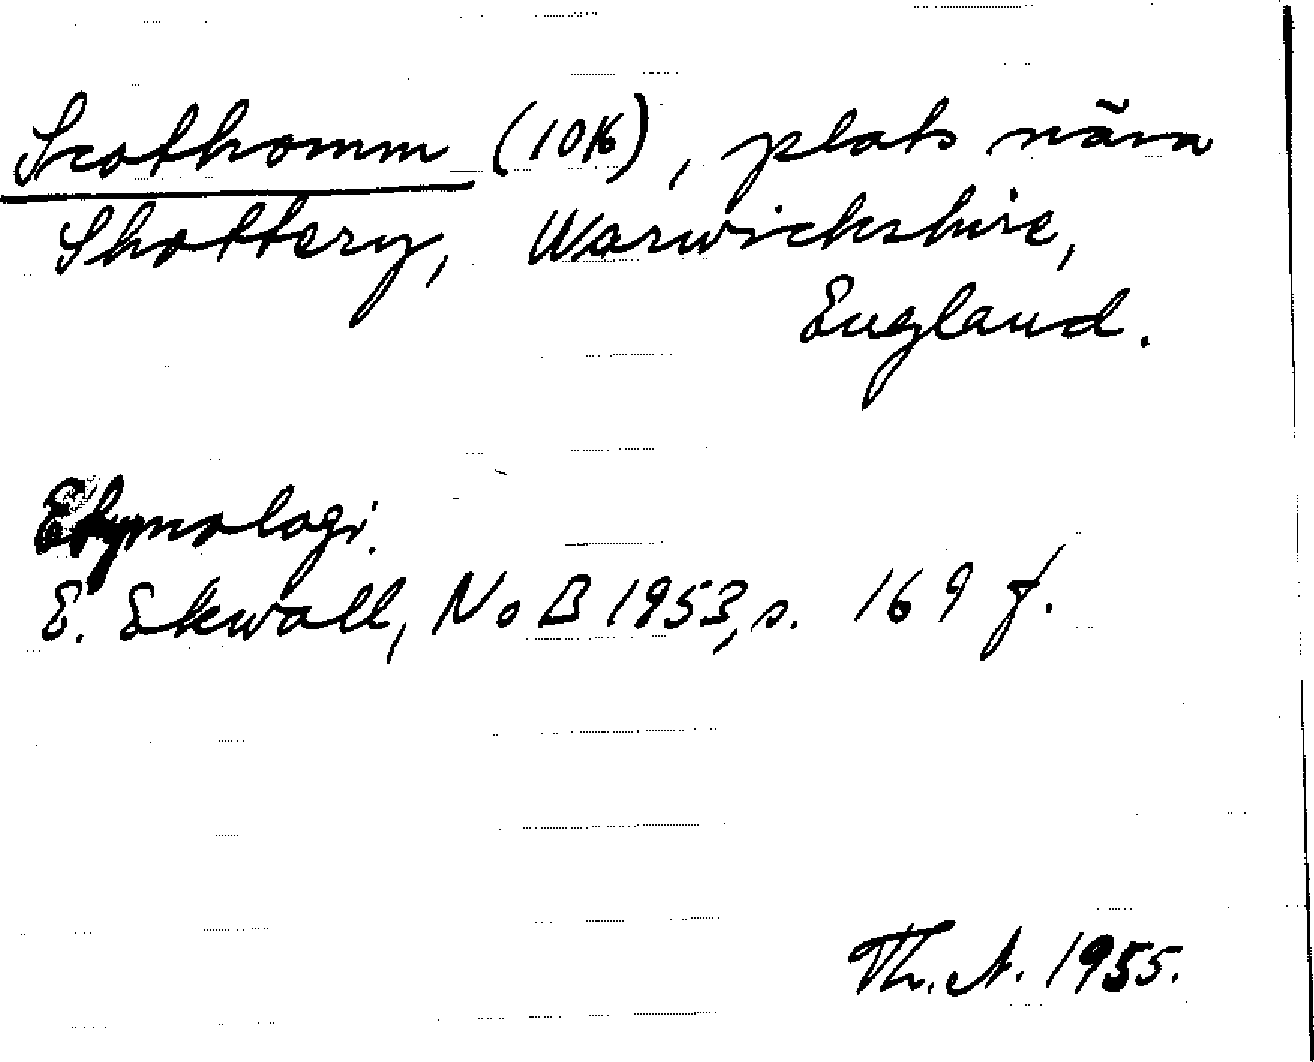 Scothomm (1016), plats nära
Shottery, Warwickshire,
England.
Etymologi.
E. Ekwall, NoB 1953, s. 169 f.
Th. A. 1955.